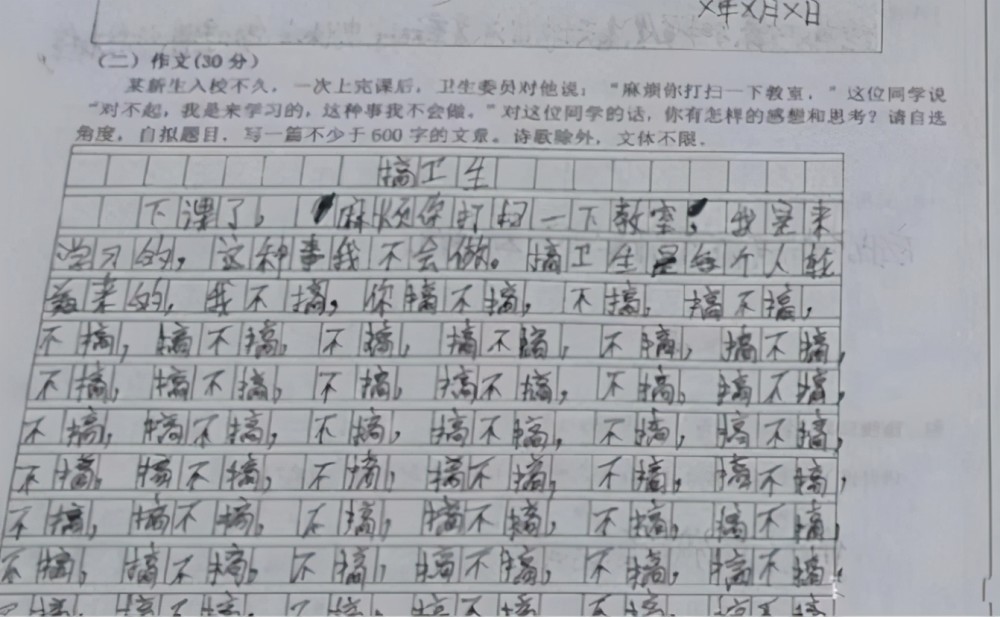 ×年×月×日
(二) 作文(30分)
某新生入校不久，一次上完课后，卫生委员对他说：“麻烦你打扫一下教室，”这位同学说
“对不起，我是来学习的，这种事我不会做。”对这位同学的话，你有怎样的感想和思考？请自选
角度，自拟题目，写一篇不少于600字的文章。诗歌除外，文体不限。
搞卫生
下课了。麻烦你打扫一下教室，我是来
学习的，这种事我不会做。搞卫生是每个人轮
着来的，我不搞，你搞不搞，不搞，搞不搞，
不搞，搞不搞，不搞，搞不搞，不搞，搞不搞，
不搞，搞不搞，不搞，搞不搞，不搞，搞不搞，
不搞，搞不搞，不搞，搞不搞，不搞，搞不搞，
不搞，搞不搞，不搞，搞不搞，不搞，搞不搞，
不搞，搞不搞，不搞，搞不搞，不搞，搞不搞，
不搞，搞不搞，不搞，搞不搞，不搞，搞不搞，
不搞，搞不搞，不搞，搞不搞，不搞，搞不搞